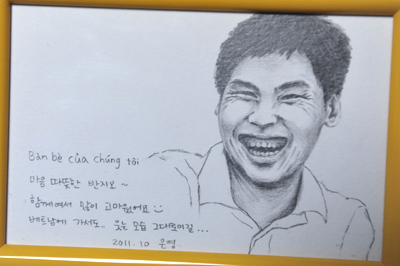 Bàn bè của chúng tôi
마음 따뜻한 반지보~
함께여서 많이 고마웠어요 :)
베트남에 가서도.. 웃는 모습 그대로이길...
2011. 10 은영